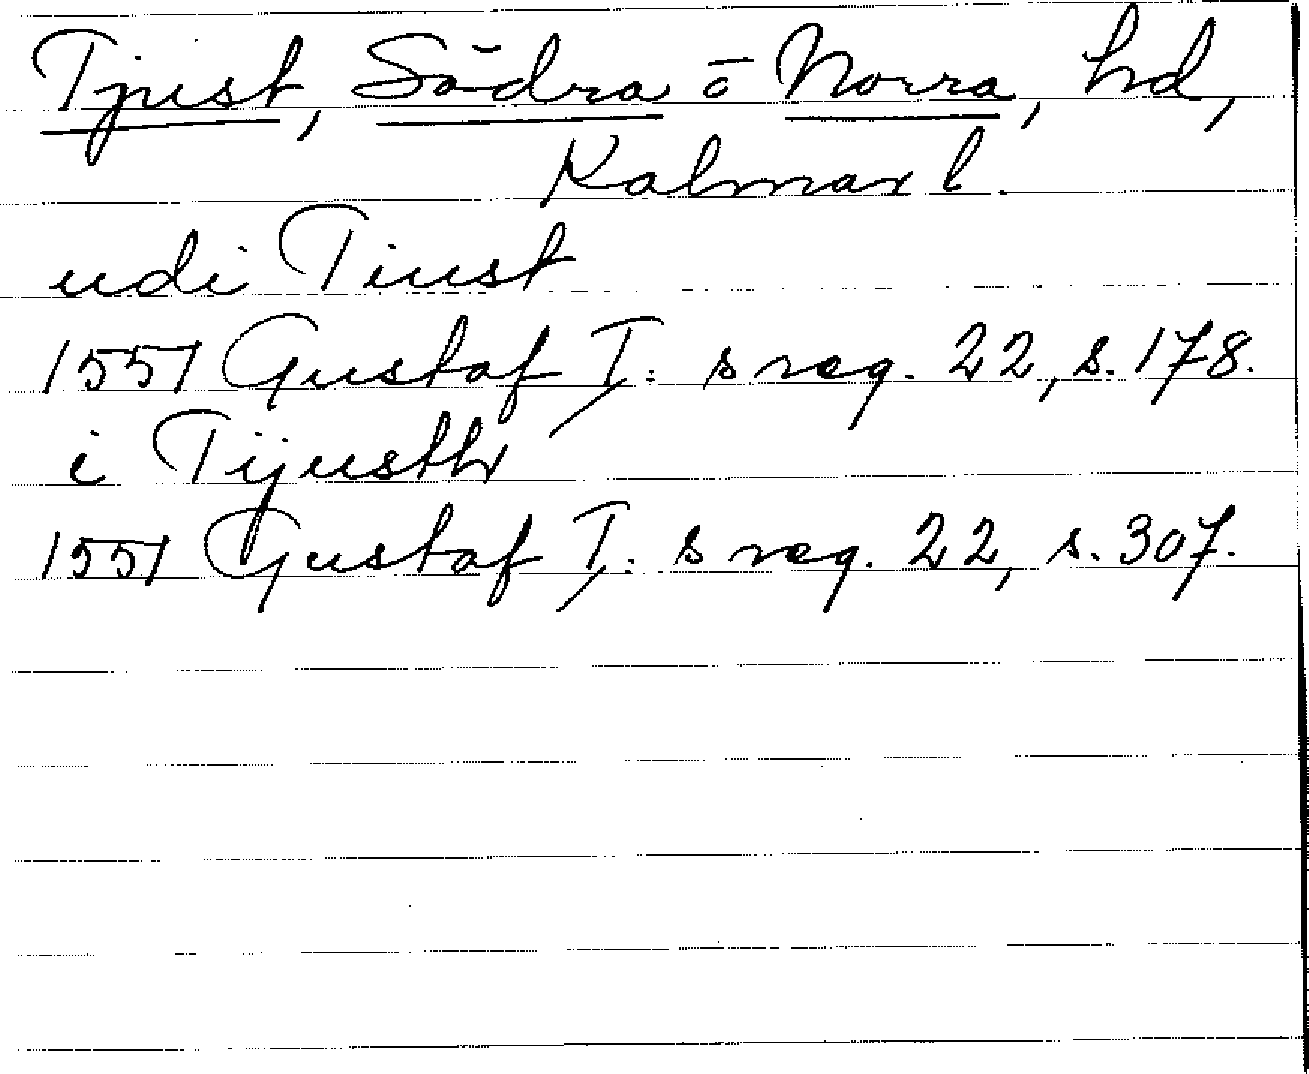 Tjust, Södra ö Norra, hd,
Kalmar l.
udi Tiust
1551 Gustaf I: s reg. 22, s. 178.
i Tijusth
1551 Gustaf I: s reg. 22, s. 307.